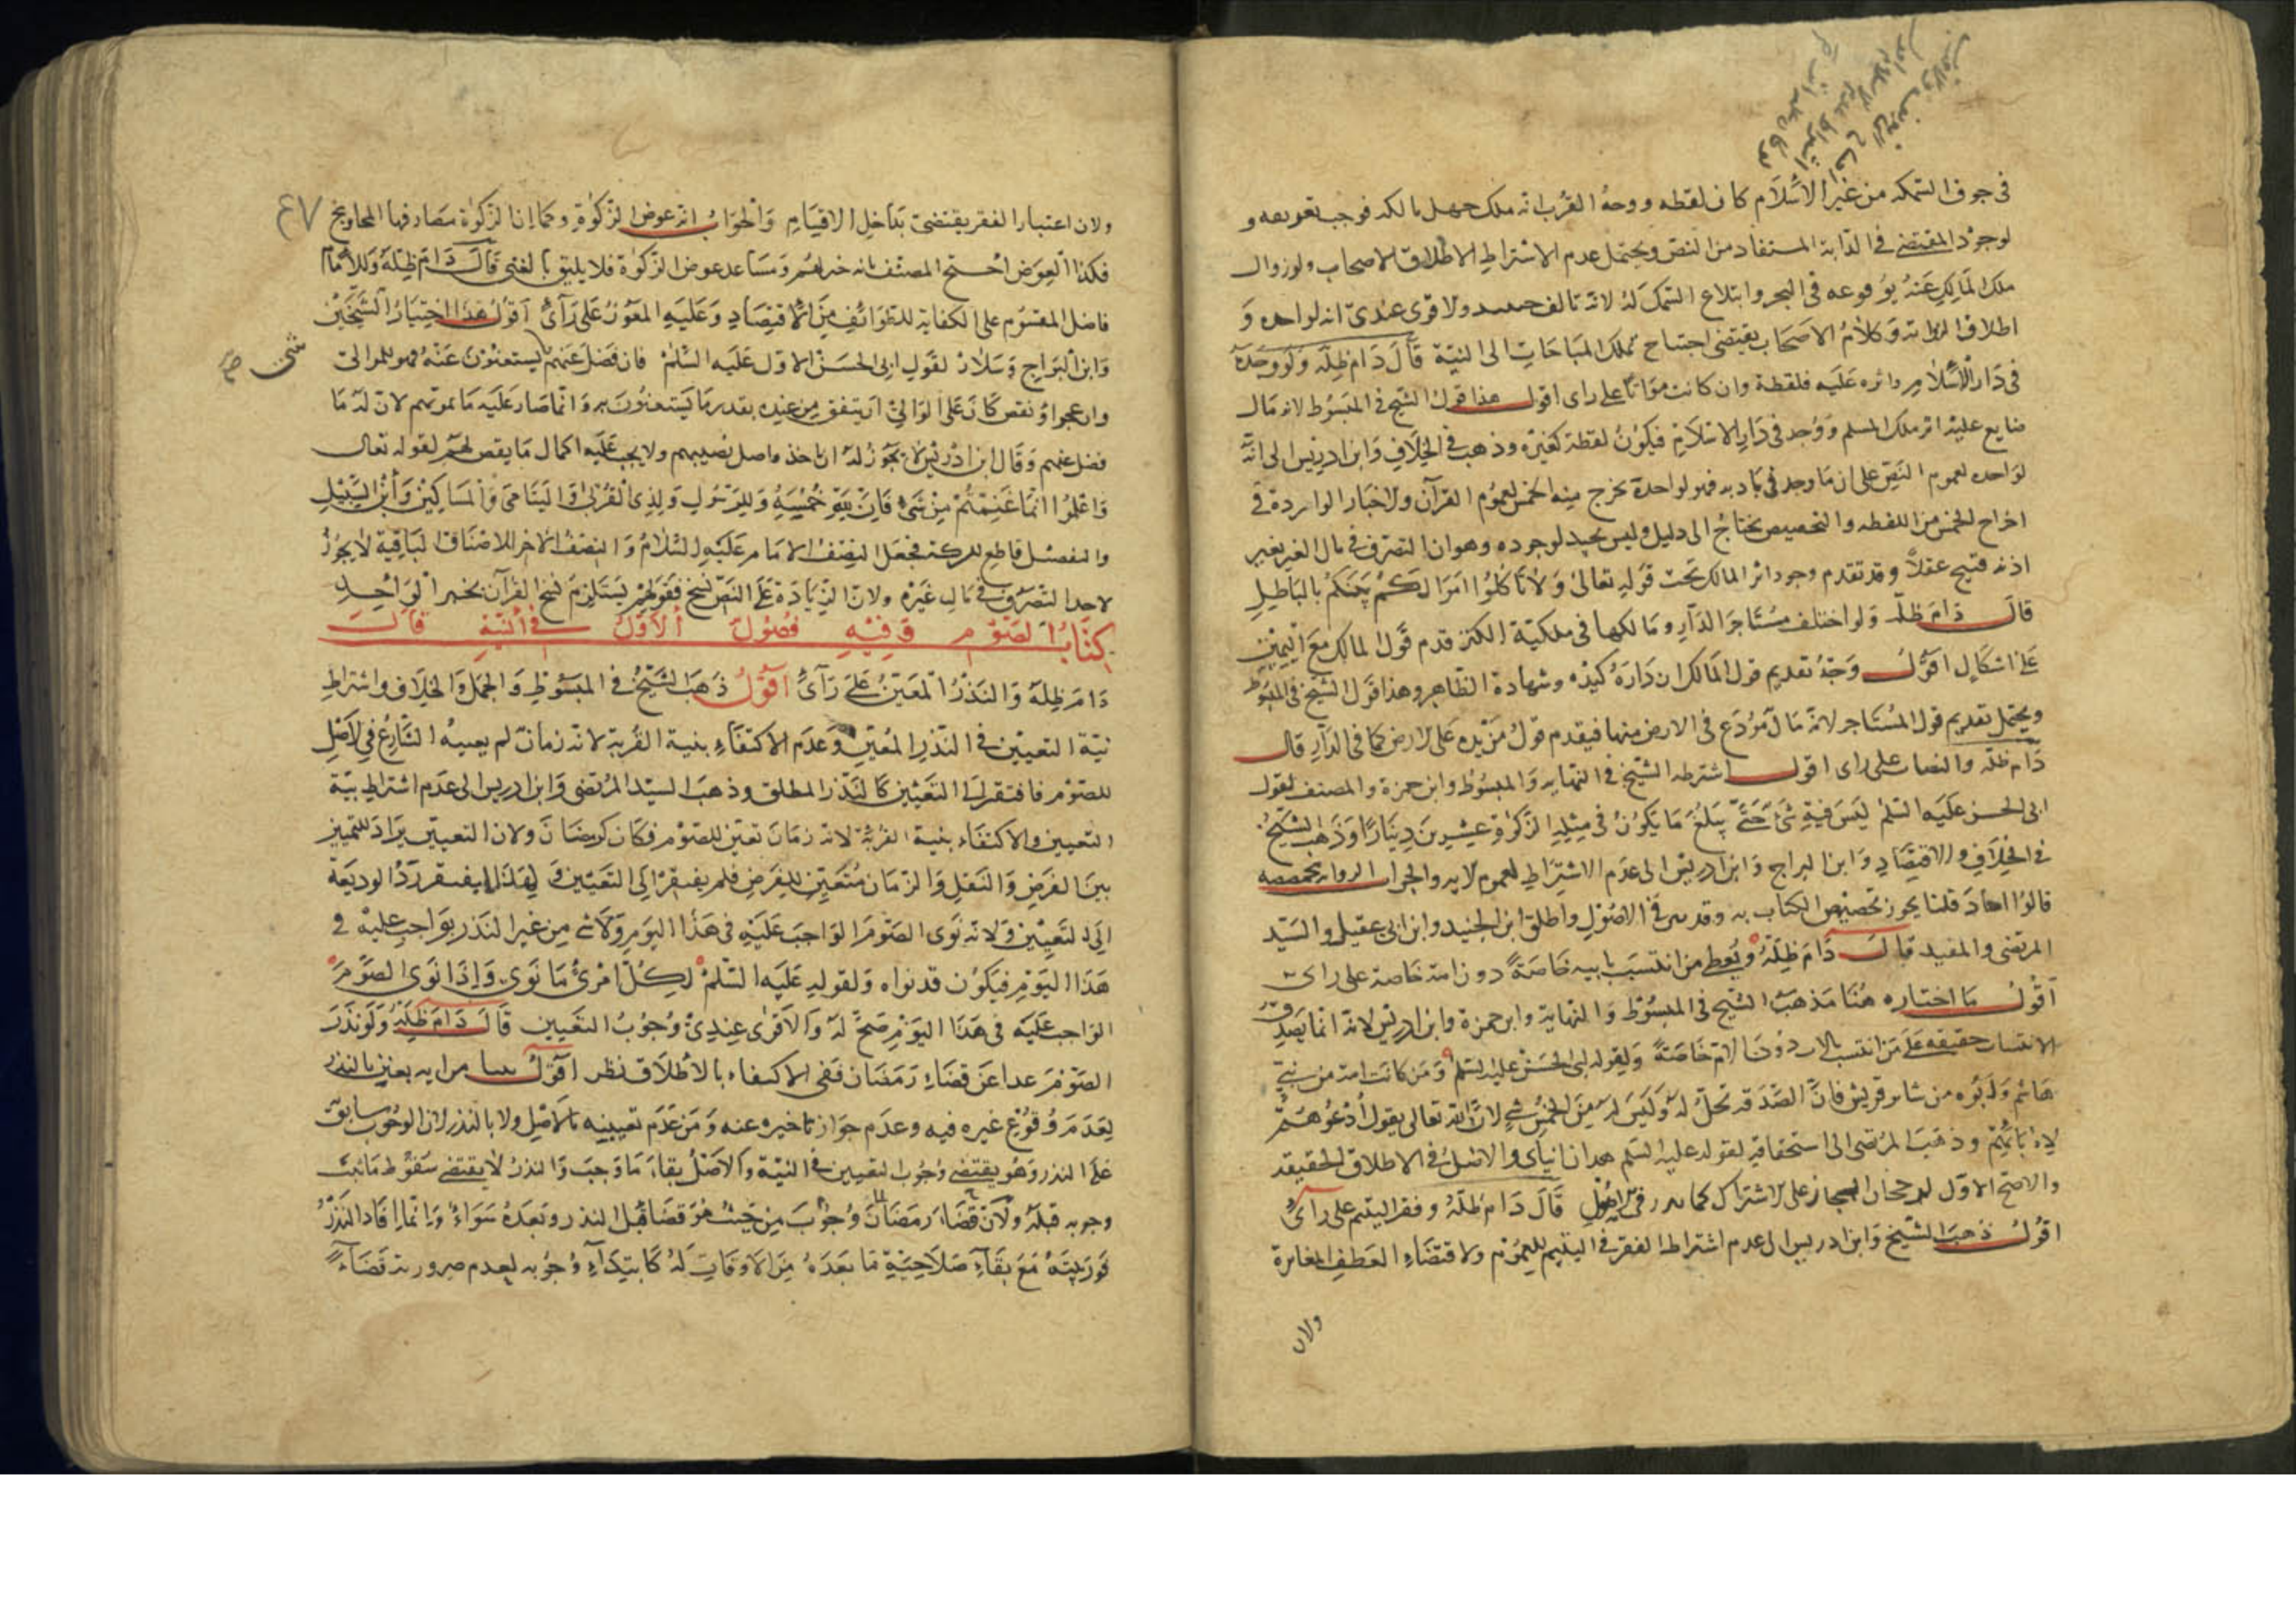 في جوف السمكه من غير الاسلام كان لقطه ووجه القرب انه ملك جهل مالكه فوجب تعريفه و
لوجود المقتضي في الدابة المستفاد من النص ويحتمل عدم الاشتراط لاطلاق الاصحاب ولزوال
ملك المالك عنه بوقوعه في البحر وابتلاع السمك له لانه تالف ولاقوى عندي انه لواجده و
اطلاق الرواية وكلام الاصحاب يقتضي احتياج تملك المباحات الى النية قال دام ظله ولو وجده
في دار الاسلام واثره عليه فلقطة وان كانت مواتا على راى اقول هذا قول الشيخ في المبسوط لانه مال
ضايع عليه اثر ملك المسلم ووجد في دار الاسلام فيكون لقطة كغيره وذهب في الخلاف وابن ادريس الى انه
لواجده لعموم النص على ان ما وجد في بادية فهو لواجده يخرج منه الخمس لعموم القرآن ولاخبار الواردة في
اخراج الخمس من اللقطه والتخصيص يحتاج الى دليل وليس بجيد لوجوده وهو ان التصرف في مال الغير بغير
اذنه قبيح عقلا وقد تقدم وجود اثر المالك تحت قوله تعالى ولا تاكلوا اموالكم بينكم بالباطل
قال دام ظله ولو اختلف مستاجر الدار ومالكها في ملكية الكنز قدم قول المالك مع اليمين
على اشكال اقول وجه تقديم قول المالك ان داره كيده وشهادة الظاهر وهذا قول الشيخ في المبسوط
ويحتمل تقديم قول المستاجر لانه مال مودع في الارض منها فيقدم قول من يده على الارض كما في الدار قال
دام ظله والنصاب على راى اقول اشترطه الشيخ في النهايه والمبسوط وابن حمزة والمصنف لقول
ابي الحسن عليه السلم ليس فيه شئ حتى يبلغ ما يكون في مثله الزكوة عشرين دينارا وذهب الشيخ
في الخلاف والاقتصاد وابن البراج وابن ادريس الى عدم الاشتراط لعموم لايه والجواب الرواية مخصصه
قالوا احاد قلنا يجوز تخصيص الكتاب به وقد في الاصول واطلق ابن الجنيد وابن ابي عقيل والسيد
المرتضى والمفيد قال دام ظله ويعطى من انتسب بابيه خاصة دون امه خاصة على راى
اقول ما اختاره هنا مذهب الشيخ في المبسوط والنهاية وابن حمزة وابن ادريس لانه انما يصدق
الانتساب حقيقه على من انتسب بالاب دون الام خاصة ولقوله ابي الحسن عليه السلم ومن كانت امه من بني
هاشم وابوه من سائر قريش فان الصدقة تحل له وليس له من الخمس شئ لان الله تعالى يقول ادعوهم
لابائهم وذهب المرتضى الى استحقاقه لقوله عليه السلم هذان ابناى والاصل في الاطلاق الحقيقه
والاصح الاول لرجحان المجاز على الاشتراك كما في الاصول قال دام ظله وفقر اليتيم على راى
اقول ذهب الشيخ وابن ادريس الى عدم اشتراط الفقر في اليتيم للعموم ولاقتضاء العطف المغايرة
ولان
٤٧
ولان اعتبار الفقر يقتضي تداخل الاقسام والجواب انه عوض الزكوة وكما ان الزكوة مصارفها المحاويج
فكذا العوض احتج المصنف بانه خير لهم ومساعد عوض الزكوة فلا يليق بالغني قال دام ظله وللامام
فاضل المقسوم على الكفاية للطوائف من الاقتصاد وعليه المعوز على راى اقول هذا اختيار الشيخين
وابن البراج وسلار لقول ابي الحسن الاول عليه السلم فان فضل عنهم يستغنون عنه فهو للوالي
شئ صح
وان عجز او نقص كان على الوالي ان ينفق من عنده بقدر ما يستغنون به وانما صار عليه ما يمونهم لان له ما
فضل عنهم وقال ابن ادريس لا يجوز له ان ياخذ فاضل نصيبهم ولا يجب عليه اكمال ما ينقص لهم لقوله تعالى
واعلموا انما غنمتم من شئ فان لله خمسه وللرسول ولذي القربى واليتامى والمساكين وابن السبيل
والتفصيل قاطع للشركة فجعل النصف للامام عليه السلام والنصف الاخر للاصناف الباقية لا يجوز
لاحد التصرف في مال غيره ولان الزيادة على النص نسخ فقولهم يستلزم نسخ القرآن بخبر الواحد
كتاب الصوم وفيه فصول الاول في النية قال
دام ظله والنذر المعين على راى اقول ذهب الشيخ في المبسوط والجمل والخلاف واشتراط
نية التعيين في النذر المعين وعدم الاكتفاء بنية القربة لانه زمان لم يعينه الشارع في الاصل
للصوم فافتقر الى التعيين كالنذر المطلق وذهب السيد المرتضى وابن ادريس الى عدم اشتراط نية
التعيين والاكتفاء بنية القربة لانه زمان تعين للصوم فكان كرمضان ولان التعيين يراد للتمييز
بين الفرض والنفل والزمان متعين للفرض فلم يفتقر الى التعيين و لهذا لم يفتقر رد الوديعة
الى التعيين ولانه نوى الصوم الواجب عليه في هذا اليوم ولا شئ من غير النذر بواجب عليه في
هذا اليوم فيكون قد نواه ولقوله عليه السلم لكل امرئ ما نوى واذا نوى الصوم
الواجب عليه في هذا اليوم صح له والاقوى عندي وجوب التعيين قال دام ظله ولو نذر
الصوم عدا عن قضاء رمضان ففي الاكتفاء بالاطلاق نظر اقول من انه يعين بالنذر
لعدم وقوع غيره فيه وعدم جواز تاخيره عنه ومن عدم تعيينه بالاصل ولا بالنذر لان الوجوب سابق
على النذر وهو يقتضي وجوب التعيين في النية والاصل بقاء ما وجب والنذر لا يقتضي سقوط ما ثبت
وجوبه قبله ولان قضاء رمضان وجوب من حيث هو قضا قبل النذر وبعده سواء وانما افاد النذر
فوريته مع بقاء صلاحية ما بعده من الاوقات له كابتداء وجوبه لعدم صيرورته قضاء